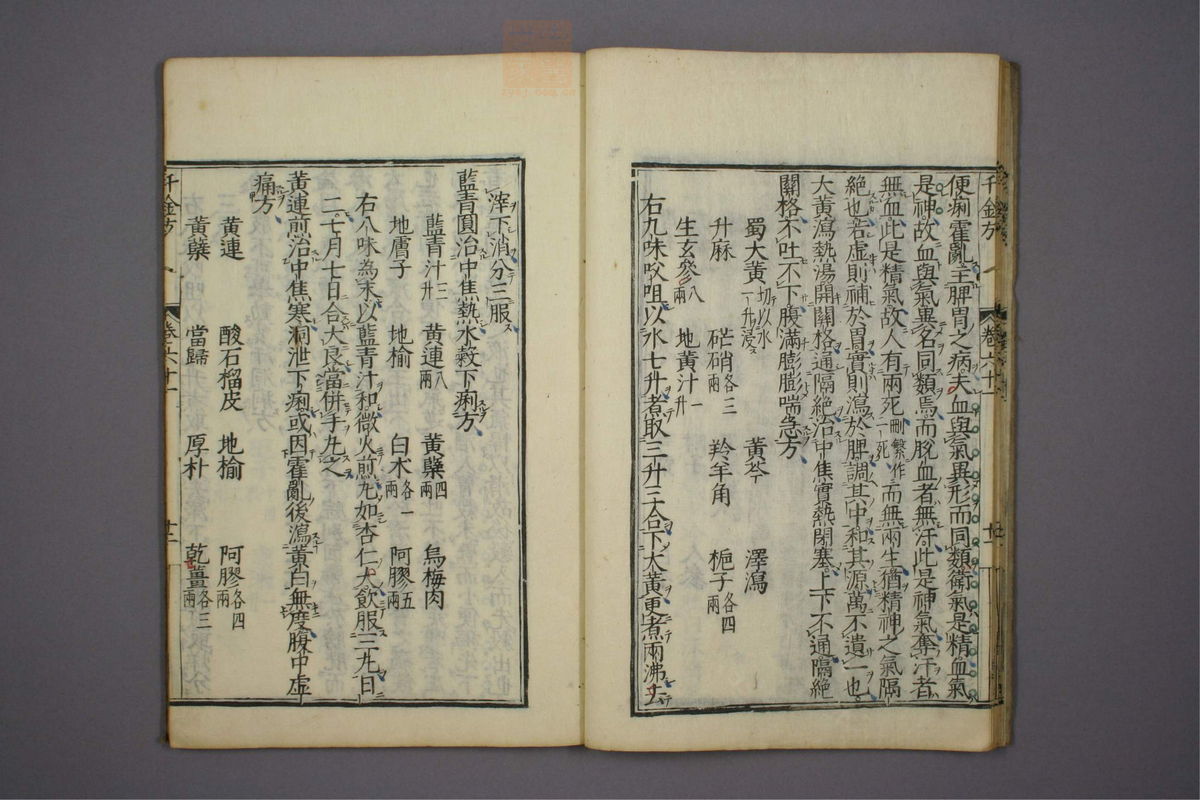 千金方 卷六十一
便痢霍亂主脾胃之病夫血與氣異形而同類衛氣是精血氣
是神故血與氣異名同類焉而脫血者無汗此是神氣奪汗者
無血此是精氣故人有兩死刪繁作一死而無兩生猶精神之氣隔
絶也若虛則補於胃實則瀉於脾調其中和其源萬不遺一也
大黃瀉熱湯開關格通隔絶治中焦實熱閉塞上下不通隔絶
關格不吐不下腹滿膨膨喘急方
蜀大黃切以水一升浸 黃芩 澤瀉
升麻 芒硝各三兩 羚羊角 梔子各四兩
生玄參八兩 地黃汁一升
右九味㕮咀以水七升煮取三升三合下大黃更煮兩沸去
滓下消分三服
藍青圓治中焦熱水穀下痢方
藍青汁三升 黃連八兩 黃蘗四兩 烏梅肉
地膚子 地榆 白术各一兩 阿膠五兩
右八味為末以藍青汁和微火煎丸如杏仁大飲服三丸日
二七月七日合大良當併手丸之
黃連煎治中焦寒洞泄下痢或因霍亂後瀉黃白無度腹中虛
痛方
黃連 酸石榴皮 地榆 阿膠各四兩
黃蘗 當歸 厚朴 乾薑各三兩
千金方 卷六十一